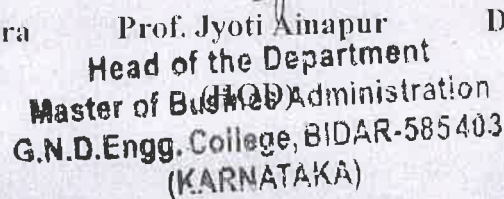 ra Prof. Jyoti Ainapur D
Head of the Department
(HOD)
Master of Business Administration
G.N.D.Engg. College, BIDAR-585403
(KARNATAKA)